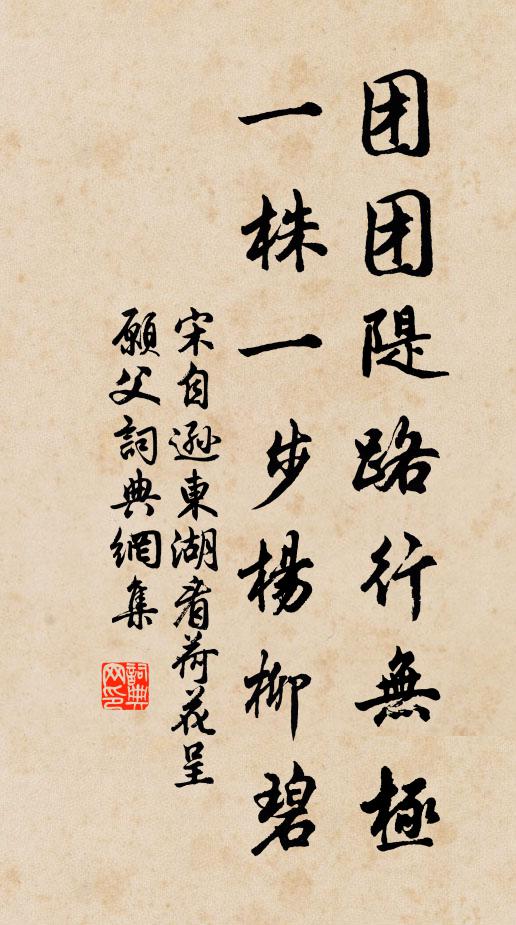 团团隄路行無極
一株一步楊柳碧
宋自遜東湖看荷花呈
願父詞典網集
詞典網印